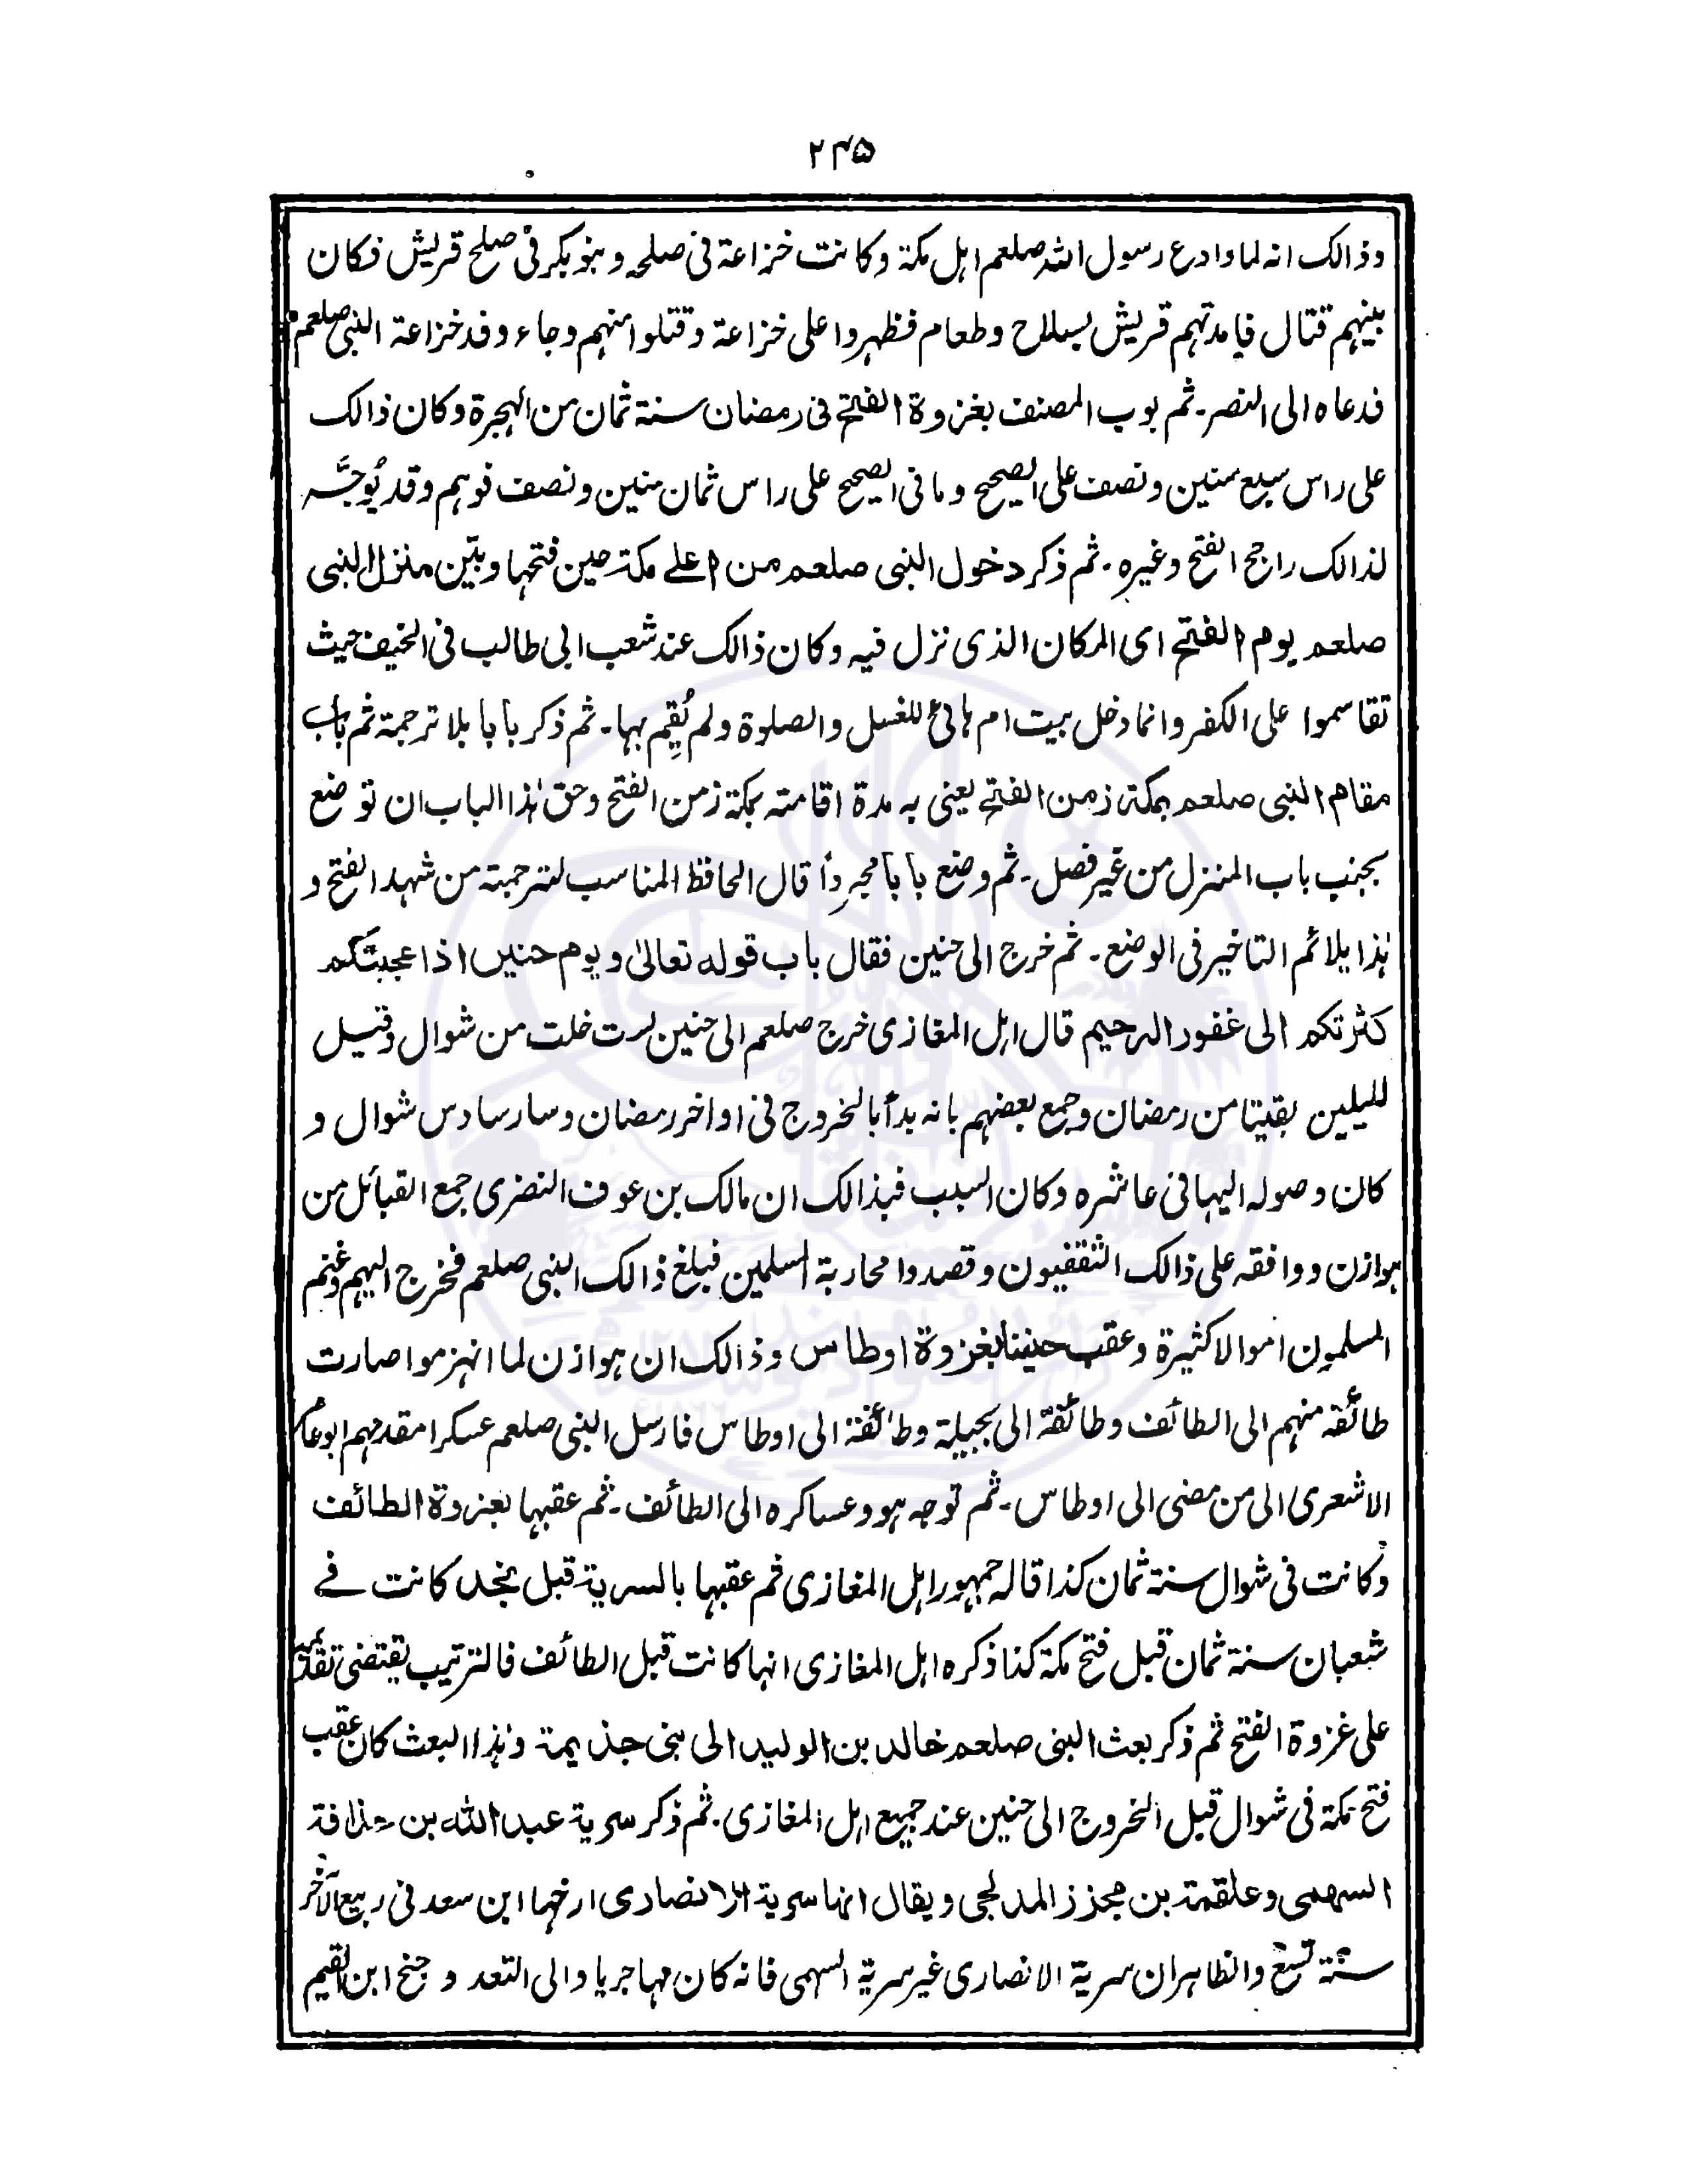 ۲۴۵
وذالک انہ لما وادع رسول اللہ صلعم اہل مکۃ وکانت خزاعۃ فی صلحہ وبنو بکر فی صلح قریش فکان
بینہم قتال فامدتہم قریش بسلاح وطعام فظہروا علی خزاعۃ وقتلوا منہم وجاء وفد خزاعۃ النبی صلعم
فدعاہ الی النصر۔ ثم بوب المصنف بغزوۃ الفتح فی رمضان سنۃ ثمان من الہجرۃ وکان ذالک
علی راس سبع سنین ونصف علی الصحیح وما فی الصحیح علی راس ثمان سنین ونصف فوہم وقد یُوجَّہ
لذالک راجح الفتح وغیرہ۔ ثم ذکر دخول النبی صلعم من اعلے مکۃ حین فتحہا وبیّن منزل النبی
صلعم یوم الفتح ای المکان الذی نزل فیہ وکان ذالک عند شعب ابی طالب فی الخیف حیث
تقاسموا علی الکفر وانما دخل بیت ام ہانیء للغسل والصلوۃ ولم یُقِم بہا۔ ثم ذکر بابا بلا ترجمۃ ثم باب
مقام النبی صلعم بمکۃ زمن الفتح یعنی بہ مدۃ اقامتہ بمکۃ زمن الفتح وحق ہٰذا الباب ان توضع
بجنب باب المنزل من غیر فصل۔ ثم وضع باباً مجرداً قال الحافظ المناسب لترجمتہ من شہد الفتح و
ہٰذا یلائم التاخیر فی الوضع۔ ثم خرج الی حنین فقال باب قولہ تعالیٰ ویوم حنین اذ اعجبتکم
کثرتکم الی غفور الرحیم قال اہل المغازی خرج صلعم الی حنین لست خلت من شوال وقیل
للیلین بقیتا من رمضان وجمع بعضہم بانہ بدأ بالخروج فی اواخر رمضان وسار سادس شوال و
کان وصولہ الیہا فی عاشرہ وکان السبب فی ذالک ان مالک بن عوف النضری جمع القبائل من
ہوازن ووافقہ علی ذالک الثقفیون وقصدوا محاربۃ المسلمین فبلغ ذالک النبی صلعم فخرج الیہم وغنم
المسلمون اموالا کثیرۃ وعقب حنینا بغزوۃ اوطاس وذالک ان ہوازن لما انہزموا صارت
طائفۃ منہم الی الطائف وطائفۃ الی بجیلۃ وطائفۃ الی اوطاس فارسل النبی صلعم عسکرا مقدمہم ابو عامر
الاشعری الی من مضی الی اوطاس۔ ثم توجہ ہو وعساکرہ الی الطائف۔ ثم عقبہا بغزوۃ الطائف
وکانت فی شوال سنۃ ثمان کذا قالہ جمہور اہل المغازی ثم عقبہا بالسریۃ قبل نجد کانت فے
شعبان سنۃ ثمان قبل فتح مکۃ کذا ذکرہ اہل المغازی انہا کانت قبل الطائف فالترتیب یقتضی تقدیمہ
علی غزوۃ الفتح ثم ذکر بعث النبی صلعم خالد بن الولید الی بنی جذیمۃ وہٰذا البعث کان عقب
فتح مکۃ فی شوال قبل الخروج الی حنین عند جمیع اہل المغازی۔ ثم ذکر سریۃ عبد اللہ بن حذافۃ
السہمی وعلقمۃ بن مجزز المدلجی ویقال انہا سریۃ الانصاری ارخہا ابن سعد فی ربیع الآخر
سنۃ تسع والظاہر ان سریۃ الانصاری غیر سریۃ السہمی فانہ کان مہاجریا والی التعدد جنح ابن القیم